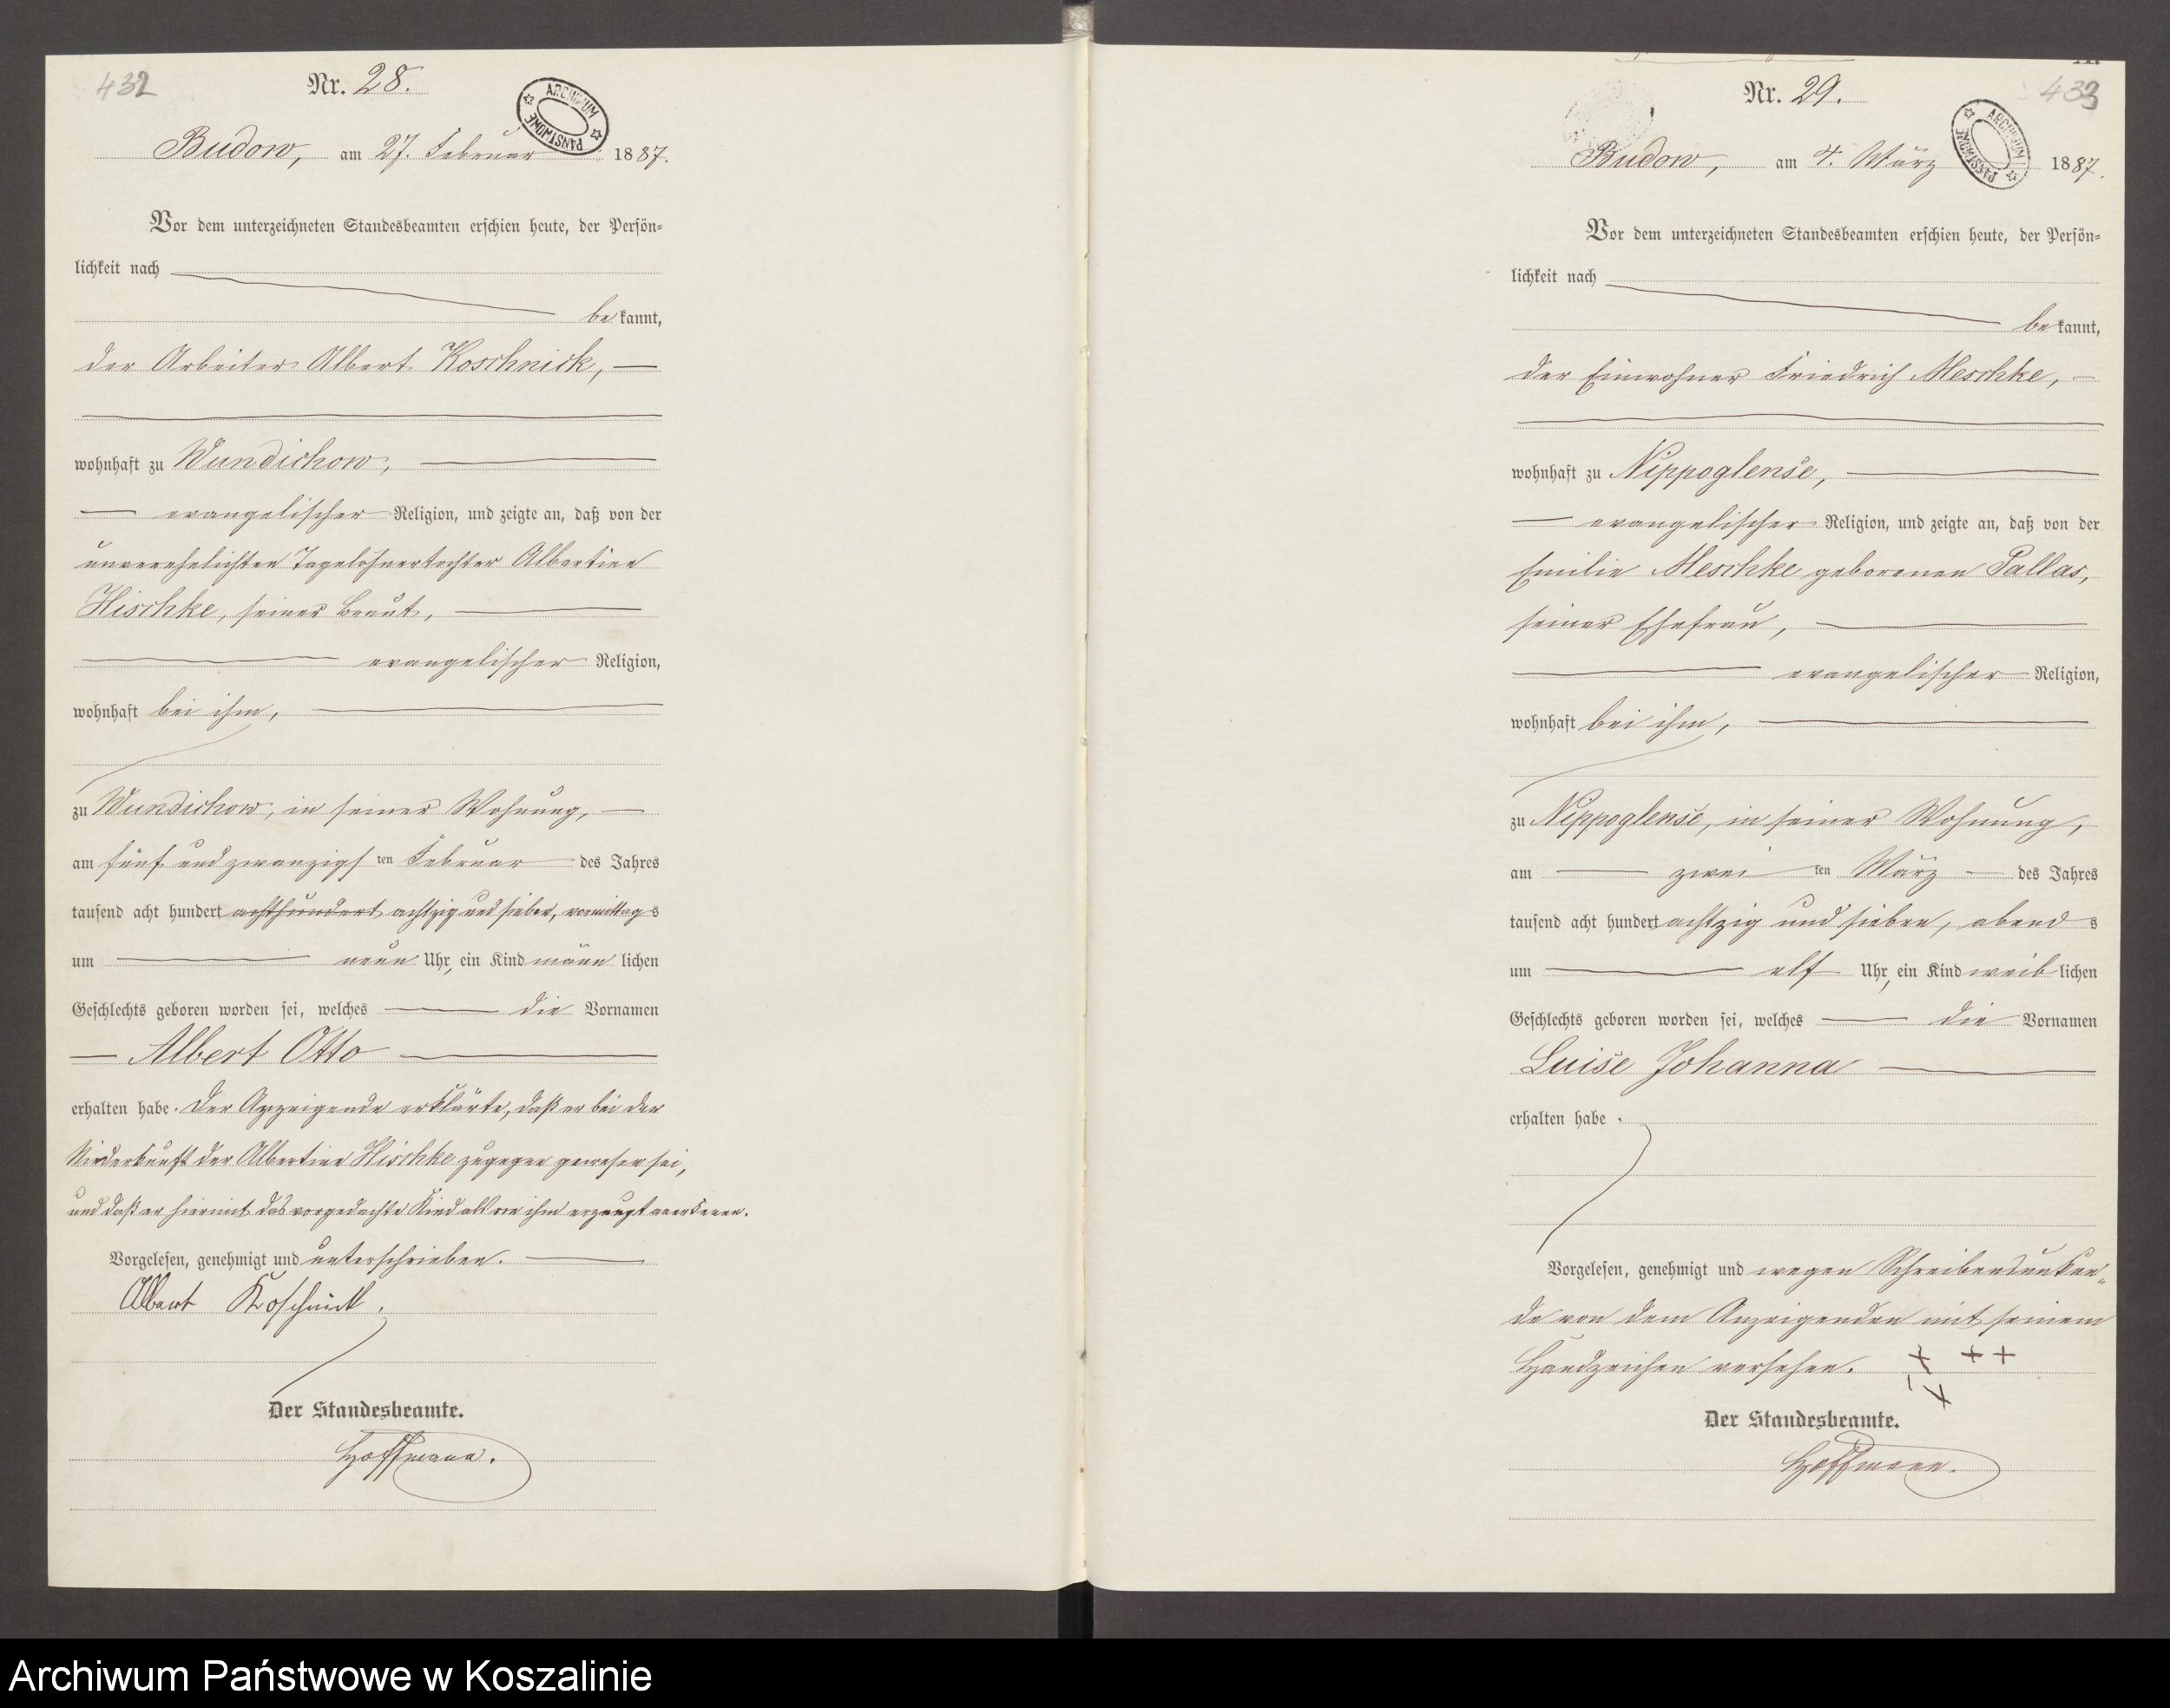 432
Nr. 28.
ARCHIWUM PAŃSTWOWE
Budow, am 27. Februar 1887.
Vor dem unterzeichneten Standesbeamten erschien heute, der Persön-
lichkeit nach
bekannt,
der Arbeiter Albert Koschnick,
wohnhaft zu Wundichow,
evangelischer Religion, und zeigte an, daß von der
unverehelichten Tagelöhnertochter Albertine
Hischke, seiner Braut,
evangelischer Religion,
wohnhaft bei ihm,
zu Wundichow, in seiner Wohnung,
am fünf und zwanzigsten Februar des Jahres
tausend acht hundert achthundert achtzig und sieben, vormittags
um neun Uhr, ein Kind männlichen
Geschlechts geboren worden sei, welches die Vornamen
Albert Otto
erhalten habe. Der Anzeigende erklärte, daß er bei der
Niederkunft der Albertine Hischke zugegen gewesen sei,
und daß er hiermit das vorgedachte Kind als von ihm erzeugt anerkenne.
Vorgelesen, genehmigt und unterschrieben.
Albert Koschnick.
Der Standesbeamte.
Hoffmann.
433
Nr. 29.
ARCHIWUM PAŃSTWOWE
Budow, am 4. März 1887.
Vor dem unterzeichneten Standesbeamten erschien heute, der Persön-
lichkeit nach
bekannt,
der Einwohner Friedrich Meschke,
wohnhaft zu Nippoglense,
evangelischer Religion, und zeigte an, daß von der
Emilie Meschke geborenen Pallas,
seiner Ehefrau,
evangelischer Religion,
wohnhaft bei ihm,
zu Nippoglense, in seiner Wohnung,
am zweiten März des Jahres
tausend acht hundert achtzig und sieben, abends
um elf Uhr, ein Kind weiblichen
Geschlechts geboren worden sei, welches die Vornamen
Luise Johanna
erhalten habe.
Vorgelesen, genehmigt und wegen Schreibensunkun-
de von dem Anzeigenden mit seinem
Handzeichen versehen. + + +
Der Standesbeamte.
Hoffmann.
Archiwum Państwowe w Koszalinie